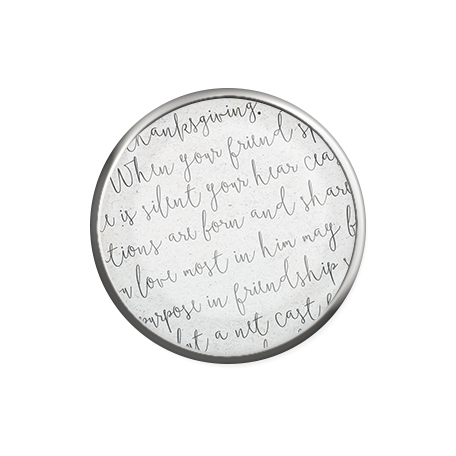 thanksgiving.
When your friend sp
e is silent your hear ceas
tions are forn and share
u love most in him may b
purpose in friendship s
but, a net cast